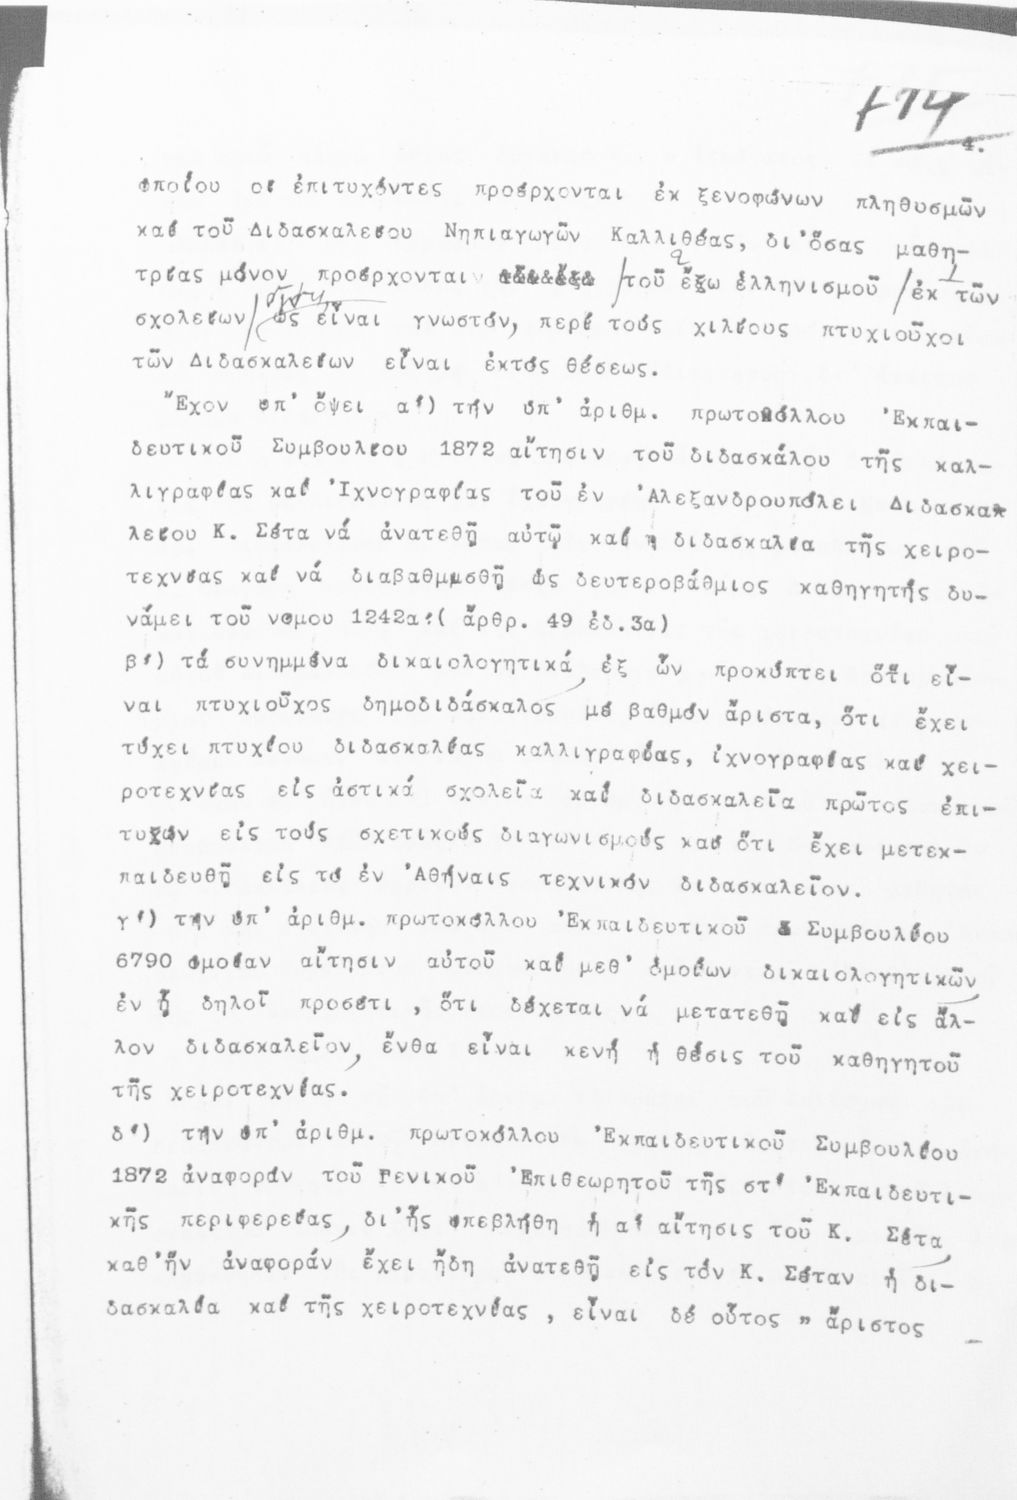 4.
ὁποίου οἱ ἐπιτυχόντες προέρχονται ἐκ ξενοφώνων πληθυσμῶν
καί τοῦ Διδασκαλείου Νηπιαγωγῶν Καλλιθέας, δι'ὅσας μαθη-
τρίας μόνον προέρχονται τοῦ ἔξω ἑλληνισμοῦ /ἐκ τῶν
σχολείων/ ὡς εἶναι γνωστόν, περί τούς χιλίους πτυχιοῦχοι
τῶν Διδασκαλείων εἶναι ἐκτός θέσεως.
Ἔχον ὑπ' ὄψει α') τήν ὑπ' ἀριθμ. πρωτοκόλλου Ἐκπαι-
δευτικοῦ Συμβουλίου 1872 αἴτησιν τοῦ διδασκάλου τῆς καλ-
λιγραφίας καί Ἰχνογραφίας τοῦ ἐν Ἀλεξανδρουπόλει Διδασκα
λείου Κ. Σέτα νά ἀνατεθῇ αὐτῷ καί ἡ διδασκαλία τῆς χειρο-
τεχνίας καί νά διαβαθμισθῇ ὡς δευτεροβάθμιος καθηγητής δυ-
νάμει τοῦ νόμου 1242α:( ἄρθρ. 49 ἐδ.3α)
β') τά συνημμένα δικαιολογητικά, ἐξ ὧν προκύπτει ὅτι εἶ-
ναι πτυχιοῦχος δημοδιδάσκαλος μέ βαθμόν ἄριστα, ὅτι ἔχει
τύχει πτυχίου διδασκαλίας καλλιγραφίας, ἰχνογραφίας καί χει-
ροτεχνίας εἰς ἀστικά σχολεῖα καί διδασκαλεῖα πρῶτος ἐπι-
τυχών εἰς τούς σχετικούς διαγωνισμούς καί ὅτι ἔχει μετεκ-
παιδευθῇ εἰς τό ἐν Ἀθήναις τεχνικόν διδασκαλεῖον.
γ') τήν ὑπ' ἀριθμ. πρωτοκόλλου Ἐκπαιδευτικοῦ Συμβουλίου
6790 ὁμοίαν αἴτησιν αὐτοῦ καί μεθ' ὁμοίων δικαιολογητικῶν,
ἐν ᾗ δηλοῖ προσέτι , ὅτι δέχεται νά μετατεθῇ καί εἰς ἄλ-
λον διδασκαλεῖον, ἔνθα εἶναι κενή ἡ θέσις τοῦ καθηγητοῦ
τῆς χειροτεχνίας.
δ') τήν ὑπ' ἀριθμ. πρωτοκόλλου Ἐκπαιδευτικοῦ Συμβουλίου
1872 ἀναφοράν τοῦ Γενικοῦ Ἐπιθεωρητοῦ τῆς στ' Ἐκπαιδευτι-
κῆς περιφερείας, δι'ἧς ὑπεβλήθη ἡ α' αἴτησις τοῦ Κ. Σέτα,
καθ'ἥν ἀναφοράν ἔχει ἤδη ἀνατεθῇ εἰς τόν Κ. Σέταν ἡ δι-
δασκαλία καί τῆς χειροτεχνίας , εἶναι δέ οὗτος " ἄριστος